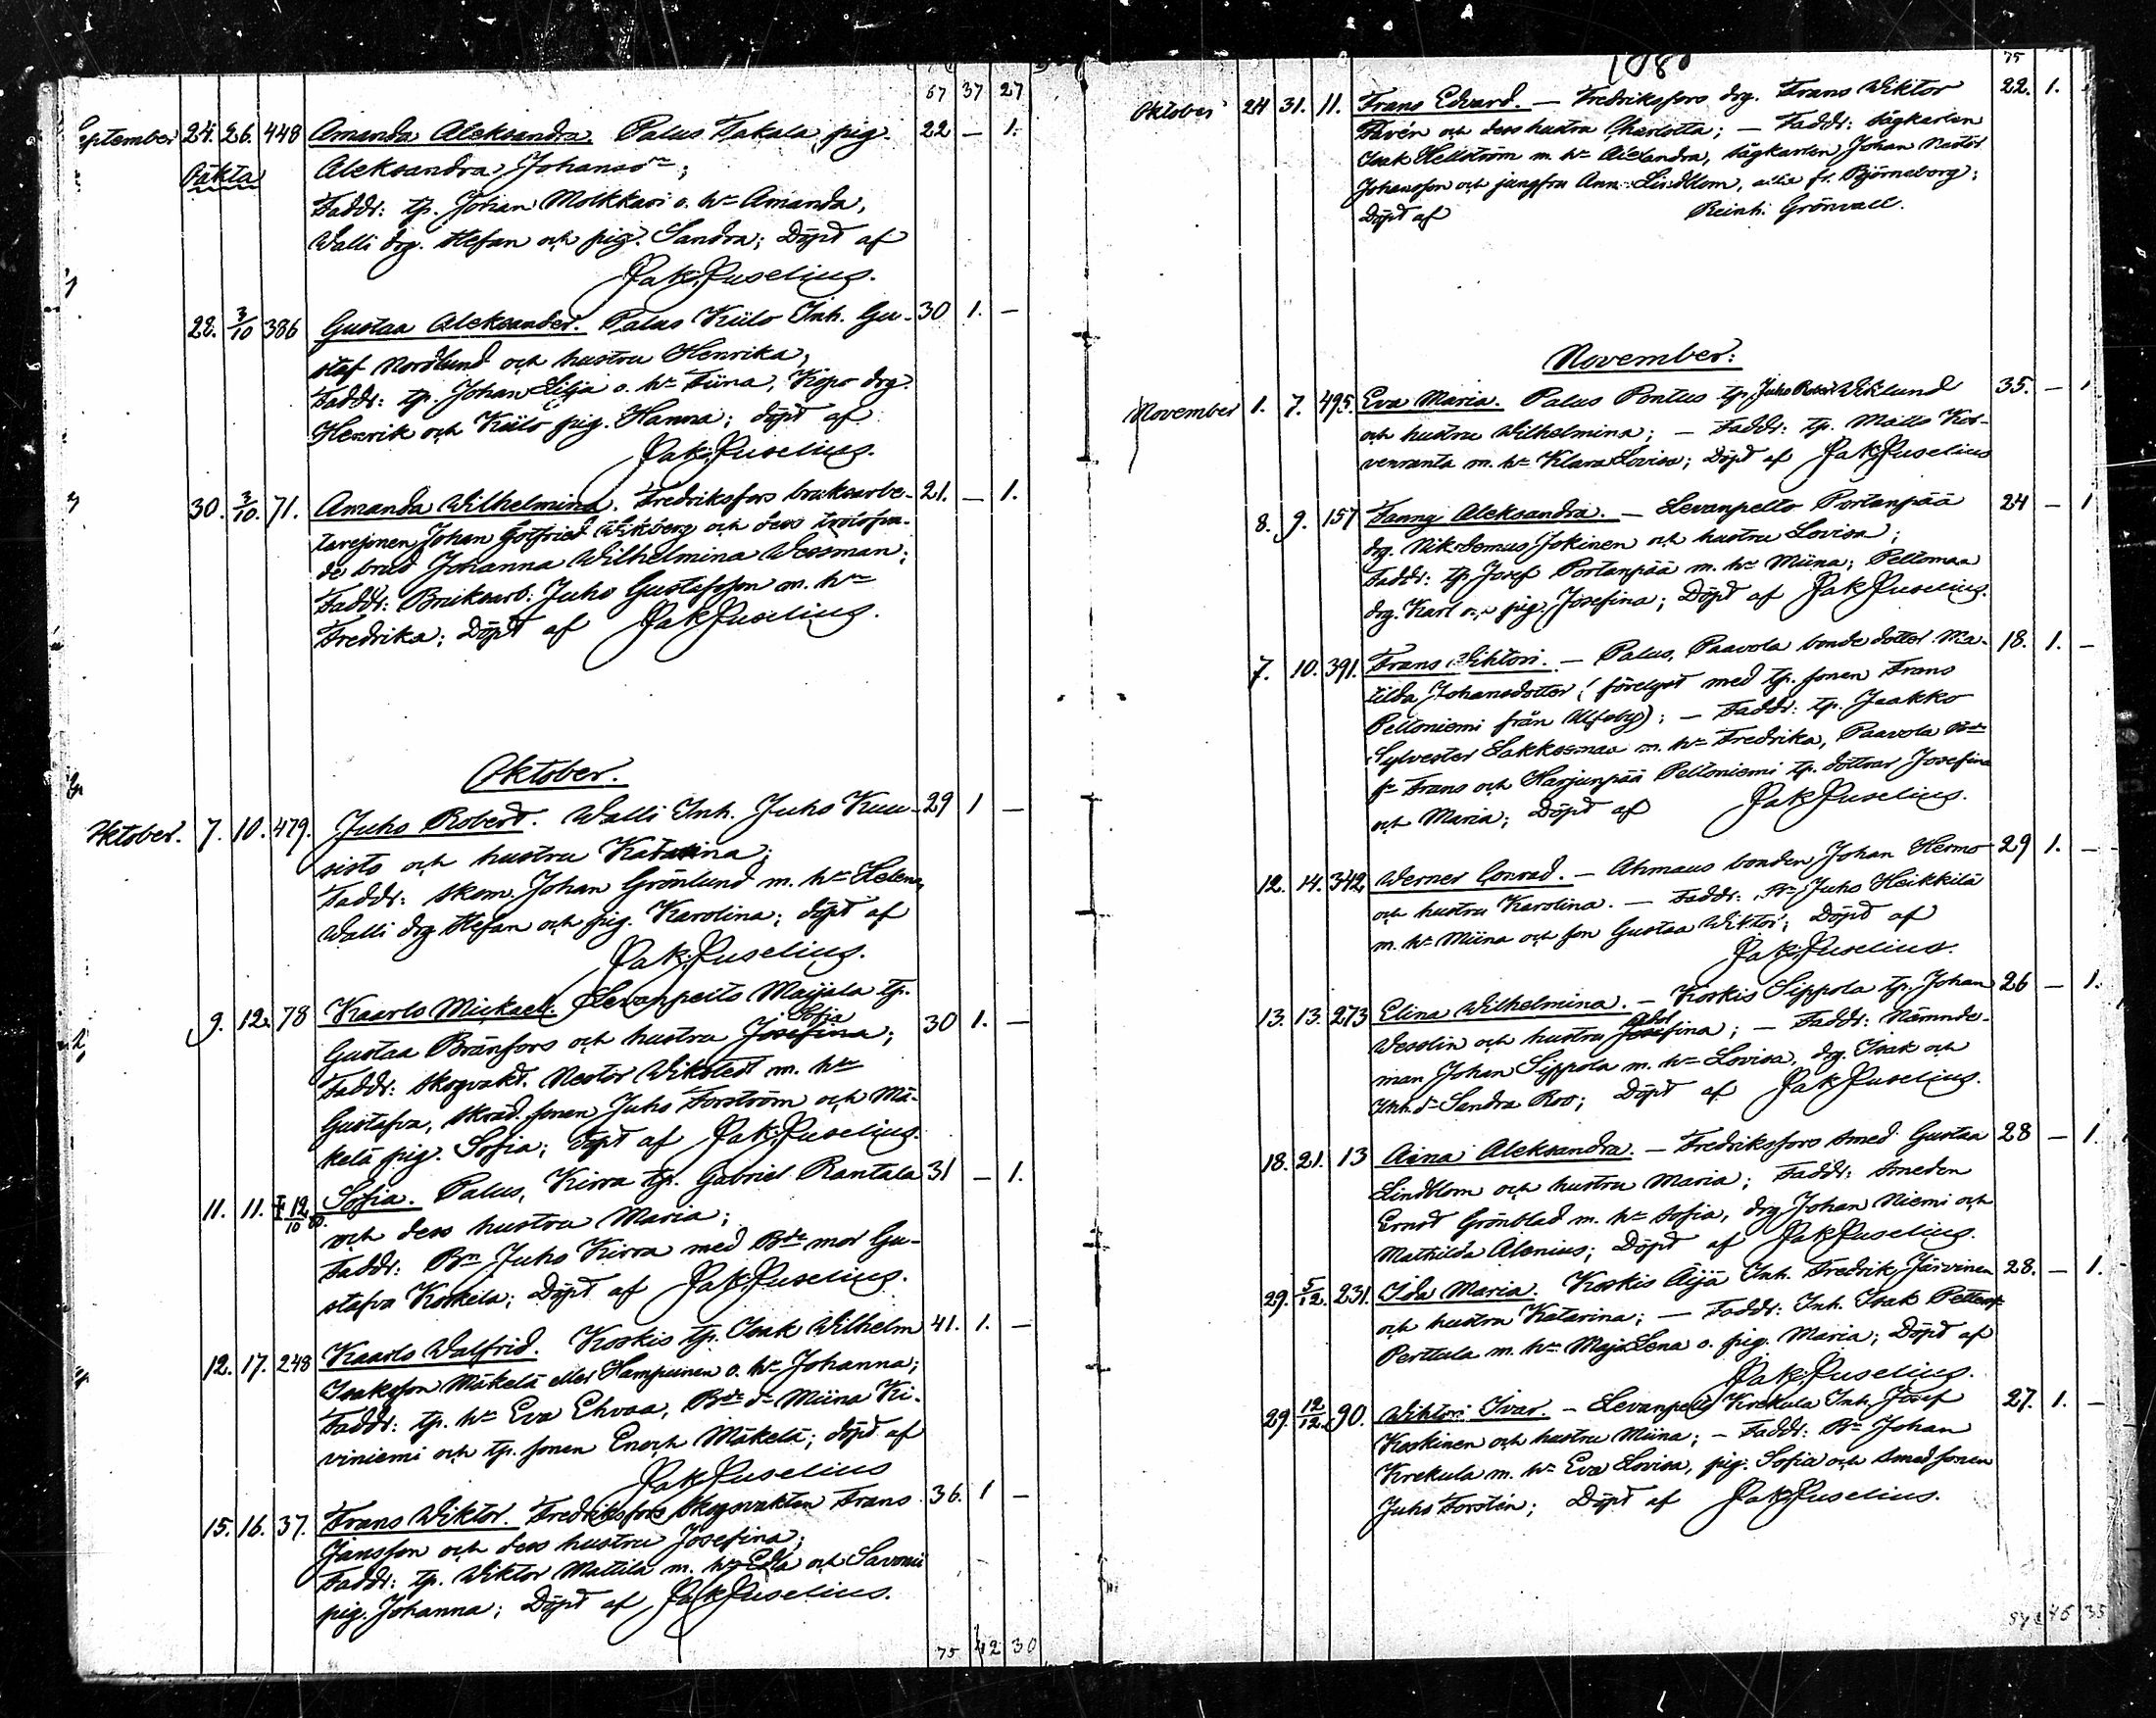 67 37 27
September 24. 26. 448 Amanda Aleksandra. Palus Takala pig. 22 — 1.
Oäkta Aleksandra Johansdr;
Faddr: tp. Johan Molkkari o. hu Amanda,
Walli drg. Stefan och pig. Sandra; Döpt af
Jak. Juselius.
22. 3/10 386 Gustaa Aleksander. Palus Kiilo Inh. Gu- 30 1. —
staf Nordlund och hustru Henrika,
Faddr: tp. Johan Lilja o. hu Tiina, Köpo drg.
Henrik och Kiilo pig. Hanna; döpt af
Jak. Juselius.
30. 3/10. 71. Amanda Wilhelmina. Fredriksfors bruksarbe- 21. — 1.
taresonen Johan Gotfried Wikberg och dess trolofva-
de brud Johanna Wilhelmina Wessman;
Faddr: Bruksarb: Juho Gustafsson m. hu
Fredrika; Döpt af Jak Juselius.
Oktober.
Oktober. 7. 10. 479. Juho Robert. Walli Inh. Juho Kuu- 29 1 —
sisto och hustru Katarina;
Faddr: skom. Johan Grönlund m. hu Helena,
Walli drg Stefan och pig. Karolina; döpt af
Jak. Juselius.
9. 12. 78 Kaarlo Mickael. Levanpelto Maijala tp.
Sofia
Gustaa Bränfors och hustru Josefina; 30 1. —
Faddr: skogvakt. Nestor Wikstedt m. hu
Gustafva, skräd. sonen Juho Forström och Mä-
kelä pig. Sofia; döpt af Jak. Juselius.
11. 11. ‡ 12/10 80. Sofia. Palus, Kirra tp. Gabriel Rantala 31 — 1.
och dess hustru Maria;
Faddr: Bn Juho Kirra med Bde mor Gu-
stafva Koskela; Döpt af Jak Juselius.
12. 17. 248 Kaarlo Walfrid. Koskis tp. Isak Wilhelm 41. 1. —
Isaksson Mäkelä eller Hampuinen o. hu Johanna;
Faddr: tp. hu Eva Ehvaa, Bde dr Miina Ki-
viniemi och tp. sonen Enoch Mäkelä; döpt af
Jak Juselius
15. 16. 37. Frans Wiktor. Fredriksfors skogvakten Frans 36. 1 —
Jansson och dess hustru Josefina;
Faddr: tp. Wiktor Mattila m. hu Edla och Savonii
pig. Johanna; Döpt af Jak Juselius.
75 42 30
1880
75
Oktober 24 31. 11. Frans Edvard. — Fredriksfors drg. Frans Wiktor 22. 1.
och dess hustru Charlotta; — Faddr: Sågkarlen
Isak Hellström m. hu Alexandra, Sågkarlen Johan Nestor
Johansson och jungfru Anna Lindblom, alla fr. Björneborg;
Döpt af Reinh. Grönvall.
November:
November 1. 7. 495. Eva Maria. Palus Pontus tp. Juho Robert Wiklund 35. — 1
och hustru Wilhelmina; — Faddr: tp. Matts Kor-
venranta m. hu Klara Lovisa; Döpt af Jak Juselius
8. 9. 157 Fanny Aleksandra. — Levanpelto Portanpää 24 — 1
drg. Nikodemus Jokinen och hustru Lovisa;
Faddr: tp. Josef Portanpää m. hu Miina; Peltomaa
drg. Karl och pig. Josefina; Döpt af Jak Juselius.
7. 10. 391. Frans Wihtori. — Palus, Paavola bonde dotter Ma- 18. 1. —
tilda Johansdotter (förelyst med tp. sonen Frans
Peltoniemi från Ulfsby); — Faddr: tp. Jaakko
Sylvester Lakkosmaa m. hu Fredrika, Paavola Bde
sn Frans och Harjunpää Peltoniemi tp. döttrar Josefina
och Maria; Döpt af Jak Juselius.
12. 14. 342 Werner Conrad. — Ahmaus bonden Johan Hermo 29 1. —
och hustru Karolina. — Faddr: Bn Juho Heikkilä
m. hu Miina och son Gustaa Wiktor; Döpt af
Jak. Juselius.
13. 13. 273 Elina Wilhelmina. — Koskis Sippola tp. Johan 26 — 1.
Wesslin och hustru Josefina; — Faddr: Nämnde-
man Johan Sippola m. hu Lovisa, drg. Isak och
Inh. dr Sandra Roo; Döpt af Jak Juselius.
18. 21. 13 Aina Aleksandra. — Fredriksfors smed Gustaa 28 — 1.
Lindblom och hustru Maria; Faddr: Smeden
Ernst Grönblad m. hu Sofia, drg Johan Niemi och
Mathilda Alenius; Döpt af Jak Juselius.
29. 5/12. 231. Ida Maria. Koskis Äijä Inh. Fredrik Järvinen 28. — 1.
och hustru Katarina; — Faddr: Inh. Isak
Perttula m. hu Maja Lena o. pig. Maria; Döpt af
Jak. Juselius.
29. 12/12. 90. Wihtori Ivar. — Levanpelto Krekula Inh. Josef 27. 1. —
Koskinen och hustru Miina; — Faddr: Bn Johan
Krekula m. hu Eva Lovisa, pig. Sofia och Smed sonen
Juho Forstén; Döpt af Jak Juselius.
46 35